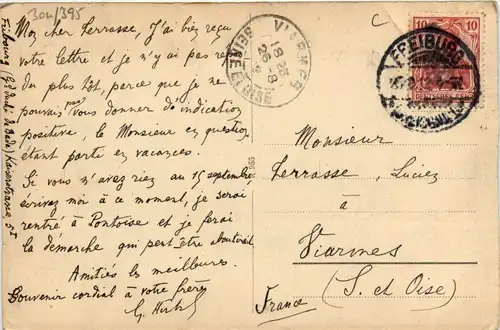 301/395
Mon cher Terrasse, J'ai bien reçu
votre lettre et je n'y ai pas répondu
plus tôt, parce que je ne
pouvais pas vous donner d'indication
positive, le Monsieur en question
étant parti en vacances.
Si vous n'avez rien au 15 septembre
écrivez moi à ce moment, je serai
rentré à Pontoise et je ferai
la démarche qui peut être aboutirait.
Amitiés les meilleures.
Souvenir cordial à votre frère
G.
Fribourg Gd Duché de Bade Kaiserstrasse 52
VIARMES
18 25
26 -8
SEINE ET OISE
C
10 10
FREIBURG
DEUTSCHES REICH
Monsieur
Terrasse, Lucien
à
Viarmes
(S. et Oise)
France